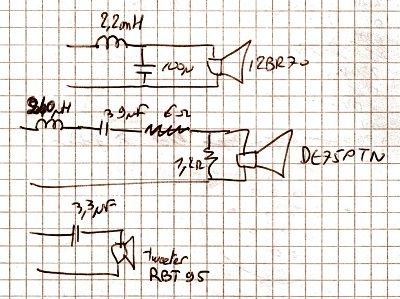 2,2mH
100µ
12BR70
3,9µF 6Ω
1,2Ω
DE75PTN
3,3µF
tweeter
RBT 95